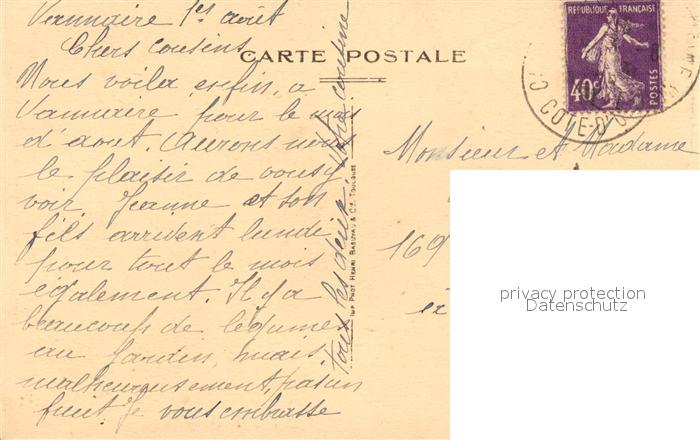 Vannaire 1er août
Chers cousins
CARTE POSTALE
Nous voila enfin, a
Vannaire pour le mois
d'aout. Aurons nous
le plaisir de vous y
voir, Jeanne et son
fils arrivent lundi
pour tout le mois
également. Il y a
beaucoup de légume
au jardin, mais
malheureusement, pas un
fruit. Je vous embrasse
tous les deux. Votre cousine
IMP. PHOT. HENRI BASUYAU & Cie, TOULOUSE
REPUBLIQUE FRANÇAISE
40c
POSTES
COTE-D'OR
Monsieur et Madame
169
privacy protection
Datenschutz